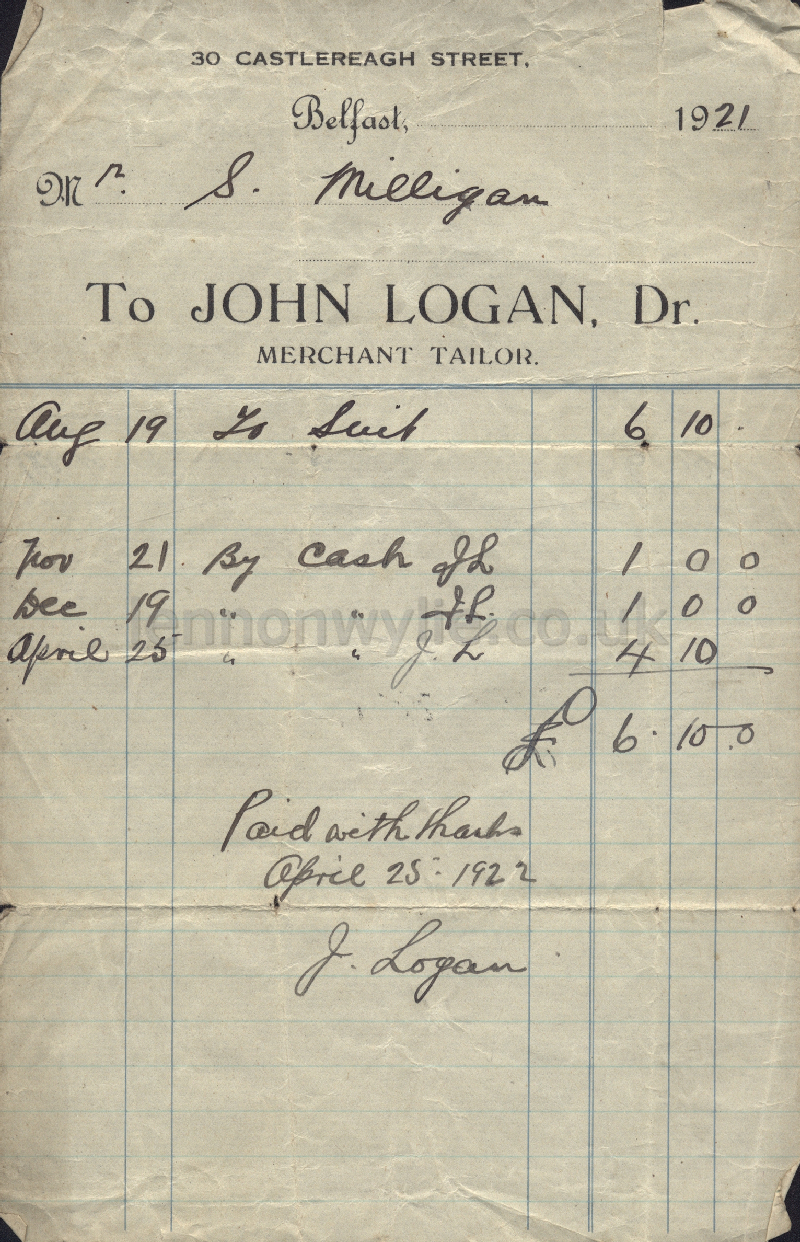 30 CASTLEREAGH STREET.
Belfast, 1921
Mr. S. Milligan
To JOHN LOGAN, Dr.
MERCHANT TAILOR.
Aug 19 To Suit 6 10 .
Nov 21. By Cash J L 1 0 0
Dec 19 " " J L. 1 0 0
April 25 " " J. L 4 10
£ 6. 10.0
Paid with thanks
April 25. 1922
J. Logan
lennonwylie.co.uk